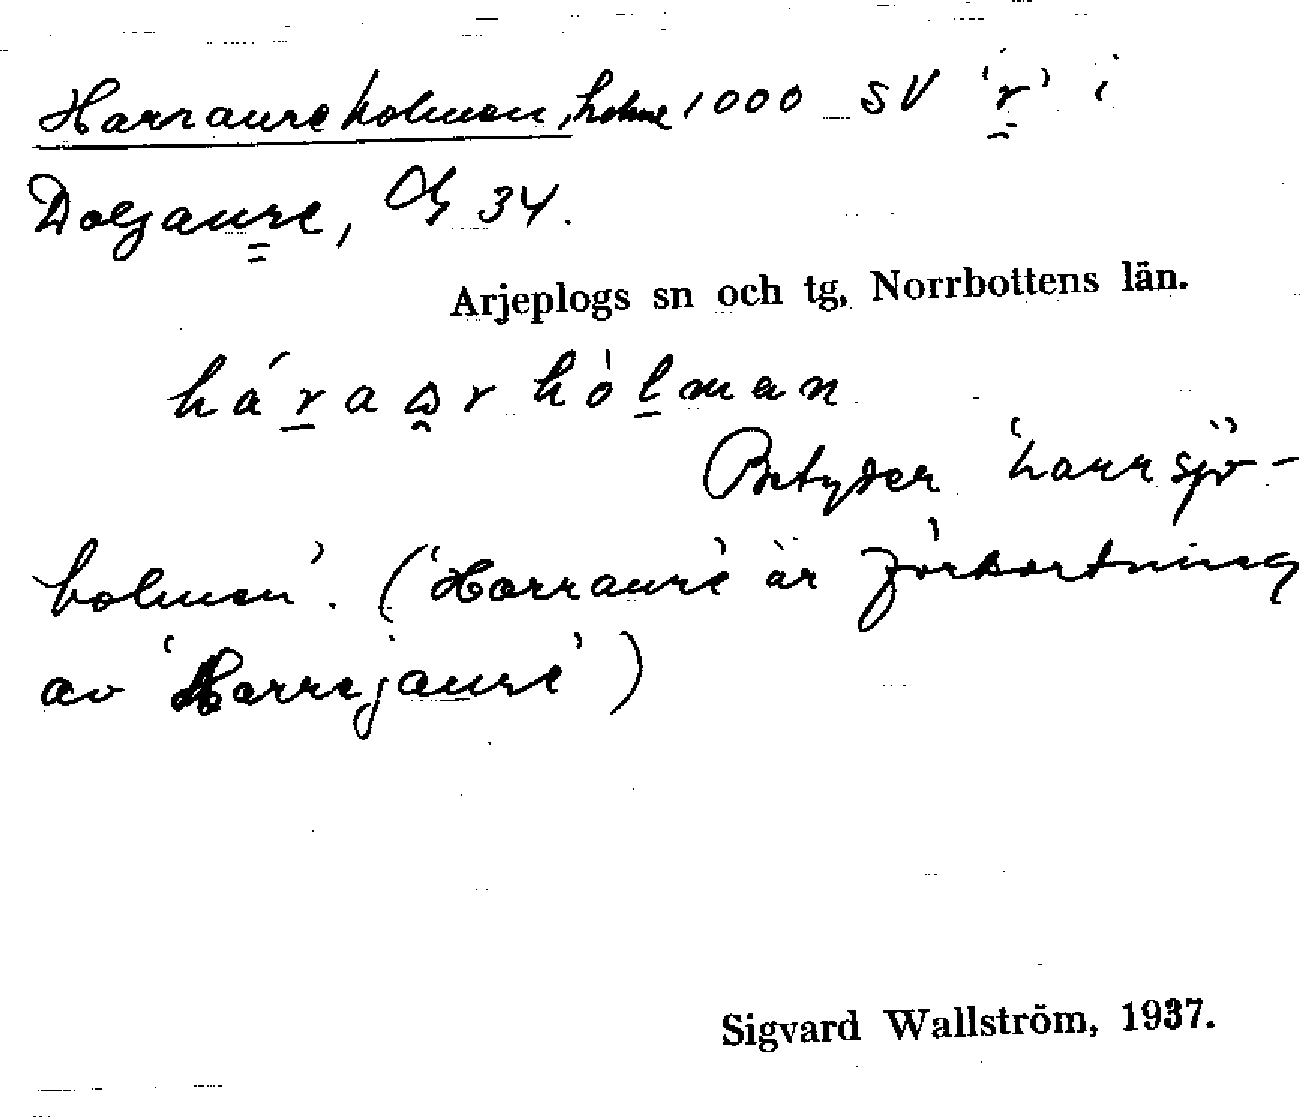 Harraureholmen, holme 1000 SV 'r' i
Dolgaure, Gk 34.
Arjeplogs sn och tg, Norrbottens län.
hároa̯r hòl̠man
Betyder 'harrsjö-
holmen'. ('Harraure' är förkortning
av 'Harrejaure')
Sigvard Wallström, 1937.